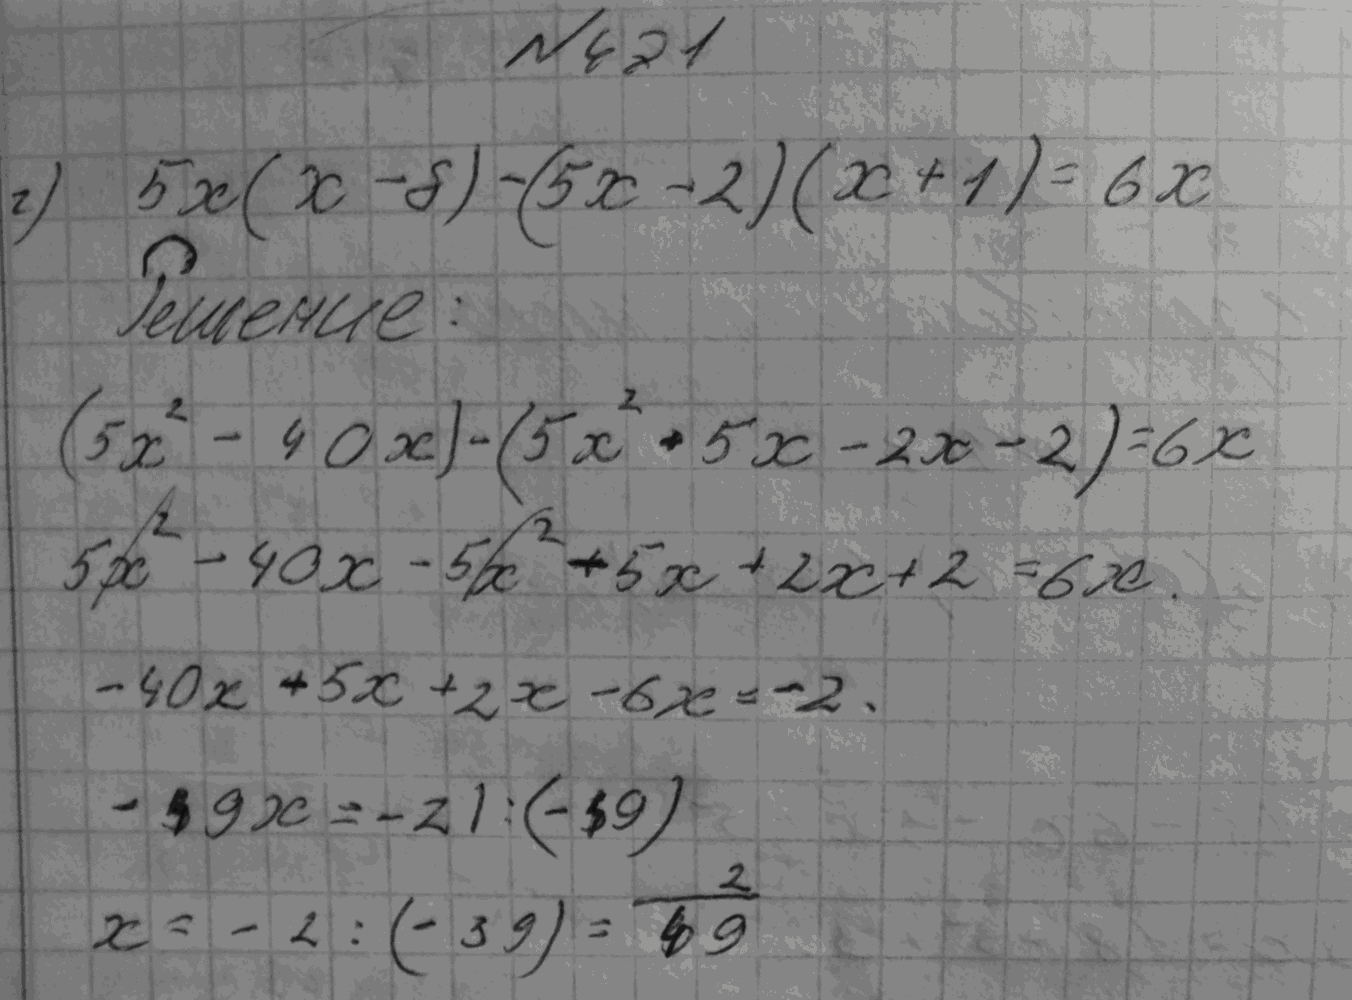 №421
г) 5x(x-8)-(5x-2)(x+1)=6x
Решение:
(5x²-40x)-(5x²+5x-2x-2)=6x
5x²-40x-5x²+5x+2x+2=6x.
-40x+5x+2x-6x=-2.
-49x=-2|:(-49)
x=-2:(-39)=2/49